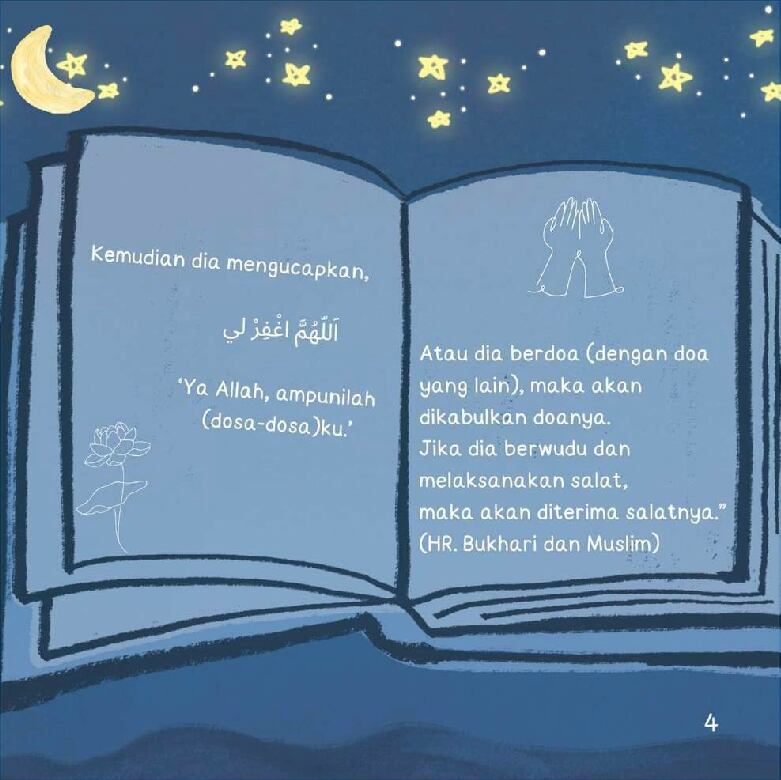 Kemudian dia mengucapkan,
اَللّٰهُمَّ اغْفِرْ لي
‘Ya Allah, ampunilah
(dosa-dosa)ku.’
Atau dia berdoa (dengan doa
yang lain), maka akan
dikabulkan doanya.
Jika dia berwudu dan
melaksanakan salat,
maka akan diterima salatnya.”
(HR. Bukhari dan Muslim)
4